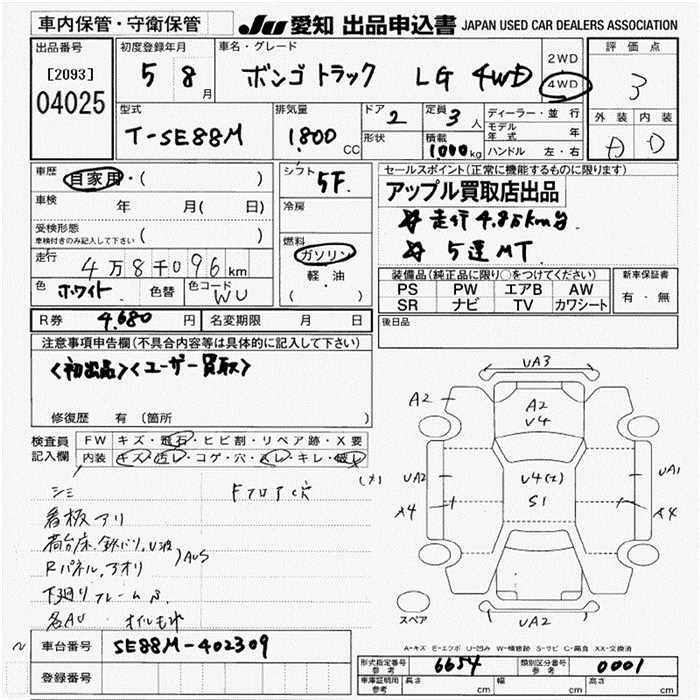 車内保管・守衛保管
JU 愛知 出品申込書 JAPAN USED CAR DEALERS ASSOCIATION
出品番号
[2093]
04025
初度登録年月
5 8月
車名・グレード
ボンゴトラック LG 4WD
2WD
4WD
評価点
3
外装 内装
A D
型式
T-SE88M
排気量
1,800 CC
ドア
2
形状
定員
3人
積載
1000kg
ディーラー・並行
モデル年式 年
ハンドル 左・右
車歴
自家用・( )
車検 年 月( 日)
受検形態
車検付きのみ記入して下さい ( )
走行
4万8千096km
色 ホワイト 色替 色コード WU
シフト
5F
冷房
燃料
ガソリン
軽・油
( )
セールスポイント(正常に機能するものに限ります)
アップル買取店出品
走行4.8万km台
5速MT
装備品(純正品に限り○をつけてください)
PS PW エアB AW
SR ナビ TV カワシート
新車保証書
有・無
後日品
R券 4,680円 名変期限 月 日
注意事項申告欄(不具合内容等は具体的に記入して下さい)
<初出品><ユーザー買取>
修復歴 有 (箇所 )
検査員記入欄
FW キズ・飛石・ヒビ割・リペア跡・X要
内装 キズ・汚レ・コゲ・穴・スレ・キレ・破レ
シミ Fフロア穴
看板アリ
荷台床、鉄バリ、U波
Rパネル、アオリ
AUS
下廻りフレームS
各AU オイルもれ
UA3
A2
A2
U4
UA2
X4
U4(大)
S1
UA1
X4
UA2
スペア
A-キズ E-エクボ U-凹み W-補修跡 S-サビ C-腐食 XX-交換済
車台番号 SE88M-402309
登録番号
形式指定番号 参考 6654 類別区分番号 参考 0001
車庫証明用 参考 長さ cm 幅 cm 高さ cm